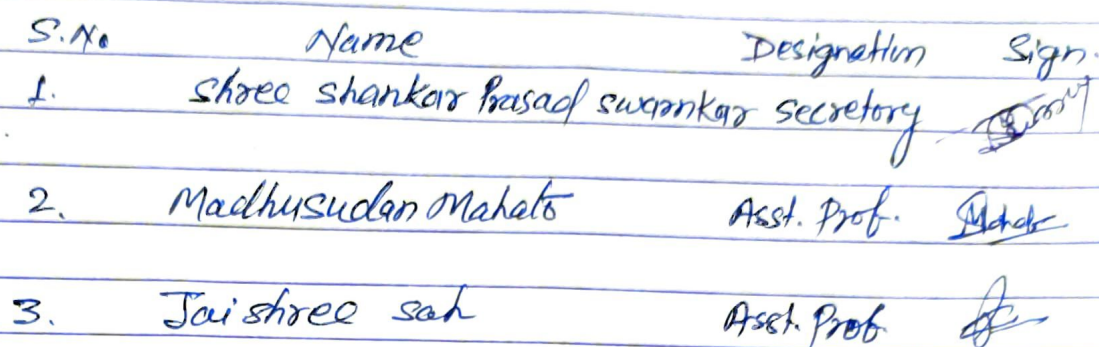 S.No Name Designation Sign.
1. Shree Shankar Prasad Swarnkar Secretory
2. Madhusudan Mahato Asst. Prof. Mahato
3. Jaishree Sah Asst. Prof